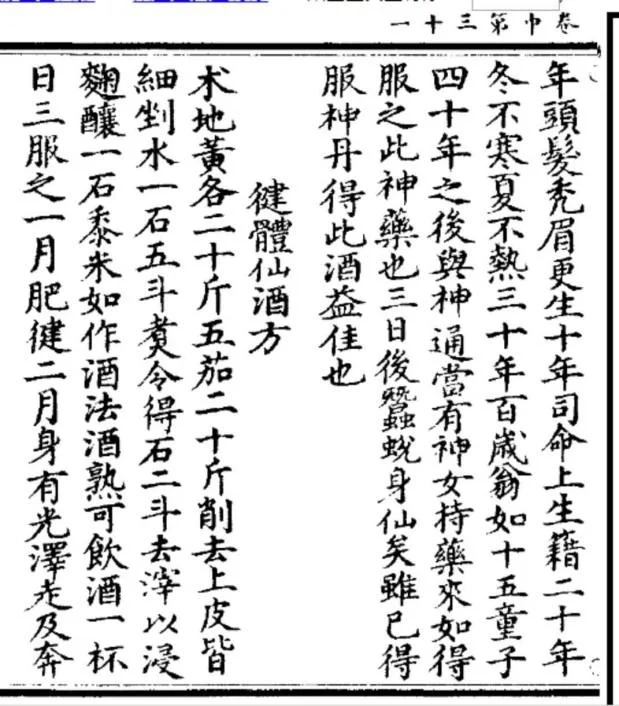 卷中第三十一
年頭髮禿眉更生十年司命上生籍二十年
冬不寒夏不熱三十年百歲翁如十五童子
四十年之後與神通當有神女持藥來如得
服之此神藥也三日後蠶蛻身仙矣雖已得
服神丹得此酒益佳也
健體仙酒方
术地黃各二十斤五茄二十斤削去上皮皆
細剉水一石五斗煑令得石二斗去滓以浸
麴釀一石黍米如作酒法酒熟可飲酒一杯
日三服之一月肥健二月身有光澤走及奔